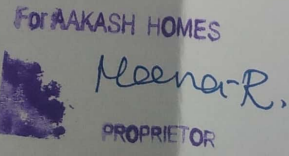 For AAKASH HOMES
Meena-R.
PROPRIETOR